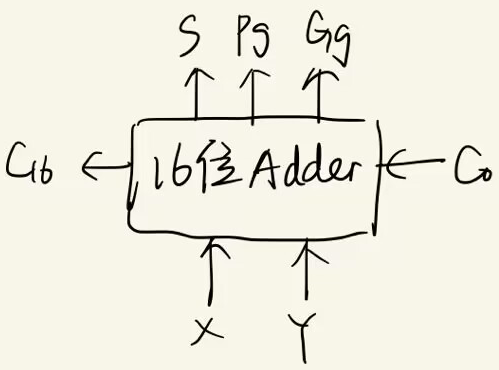 S Pg Gg
C16 16位Adder C0
X Y